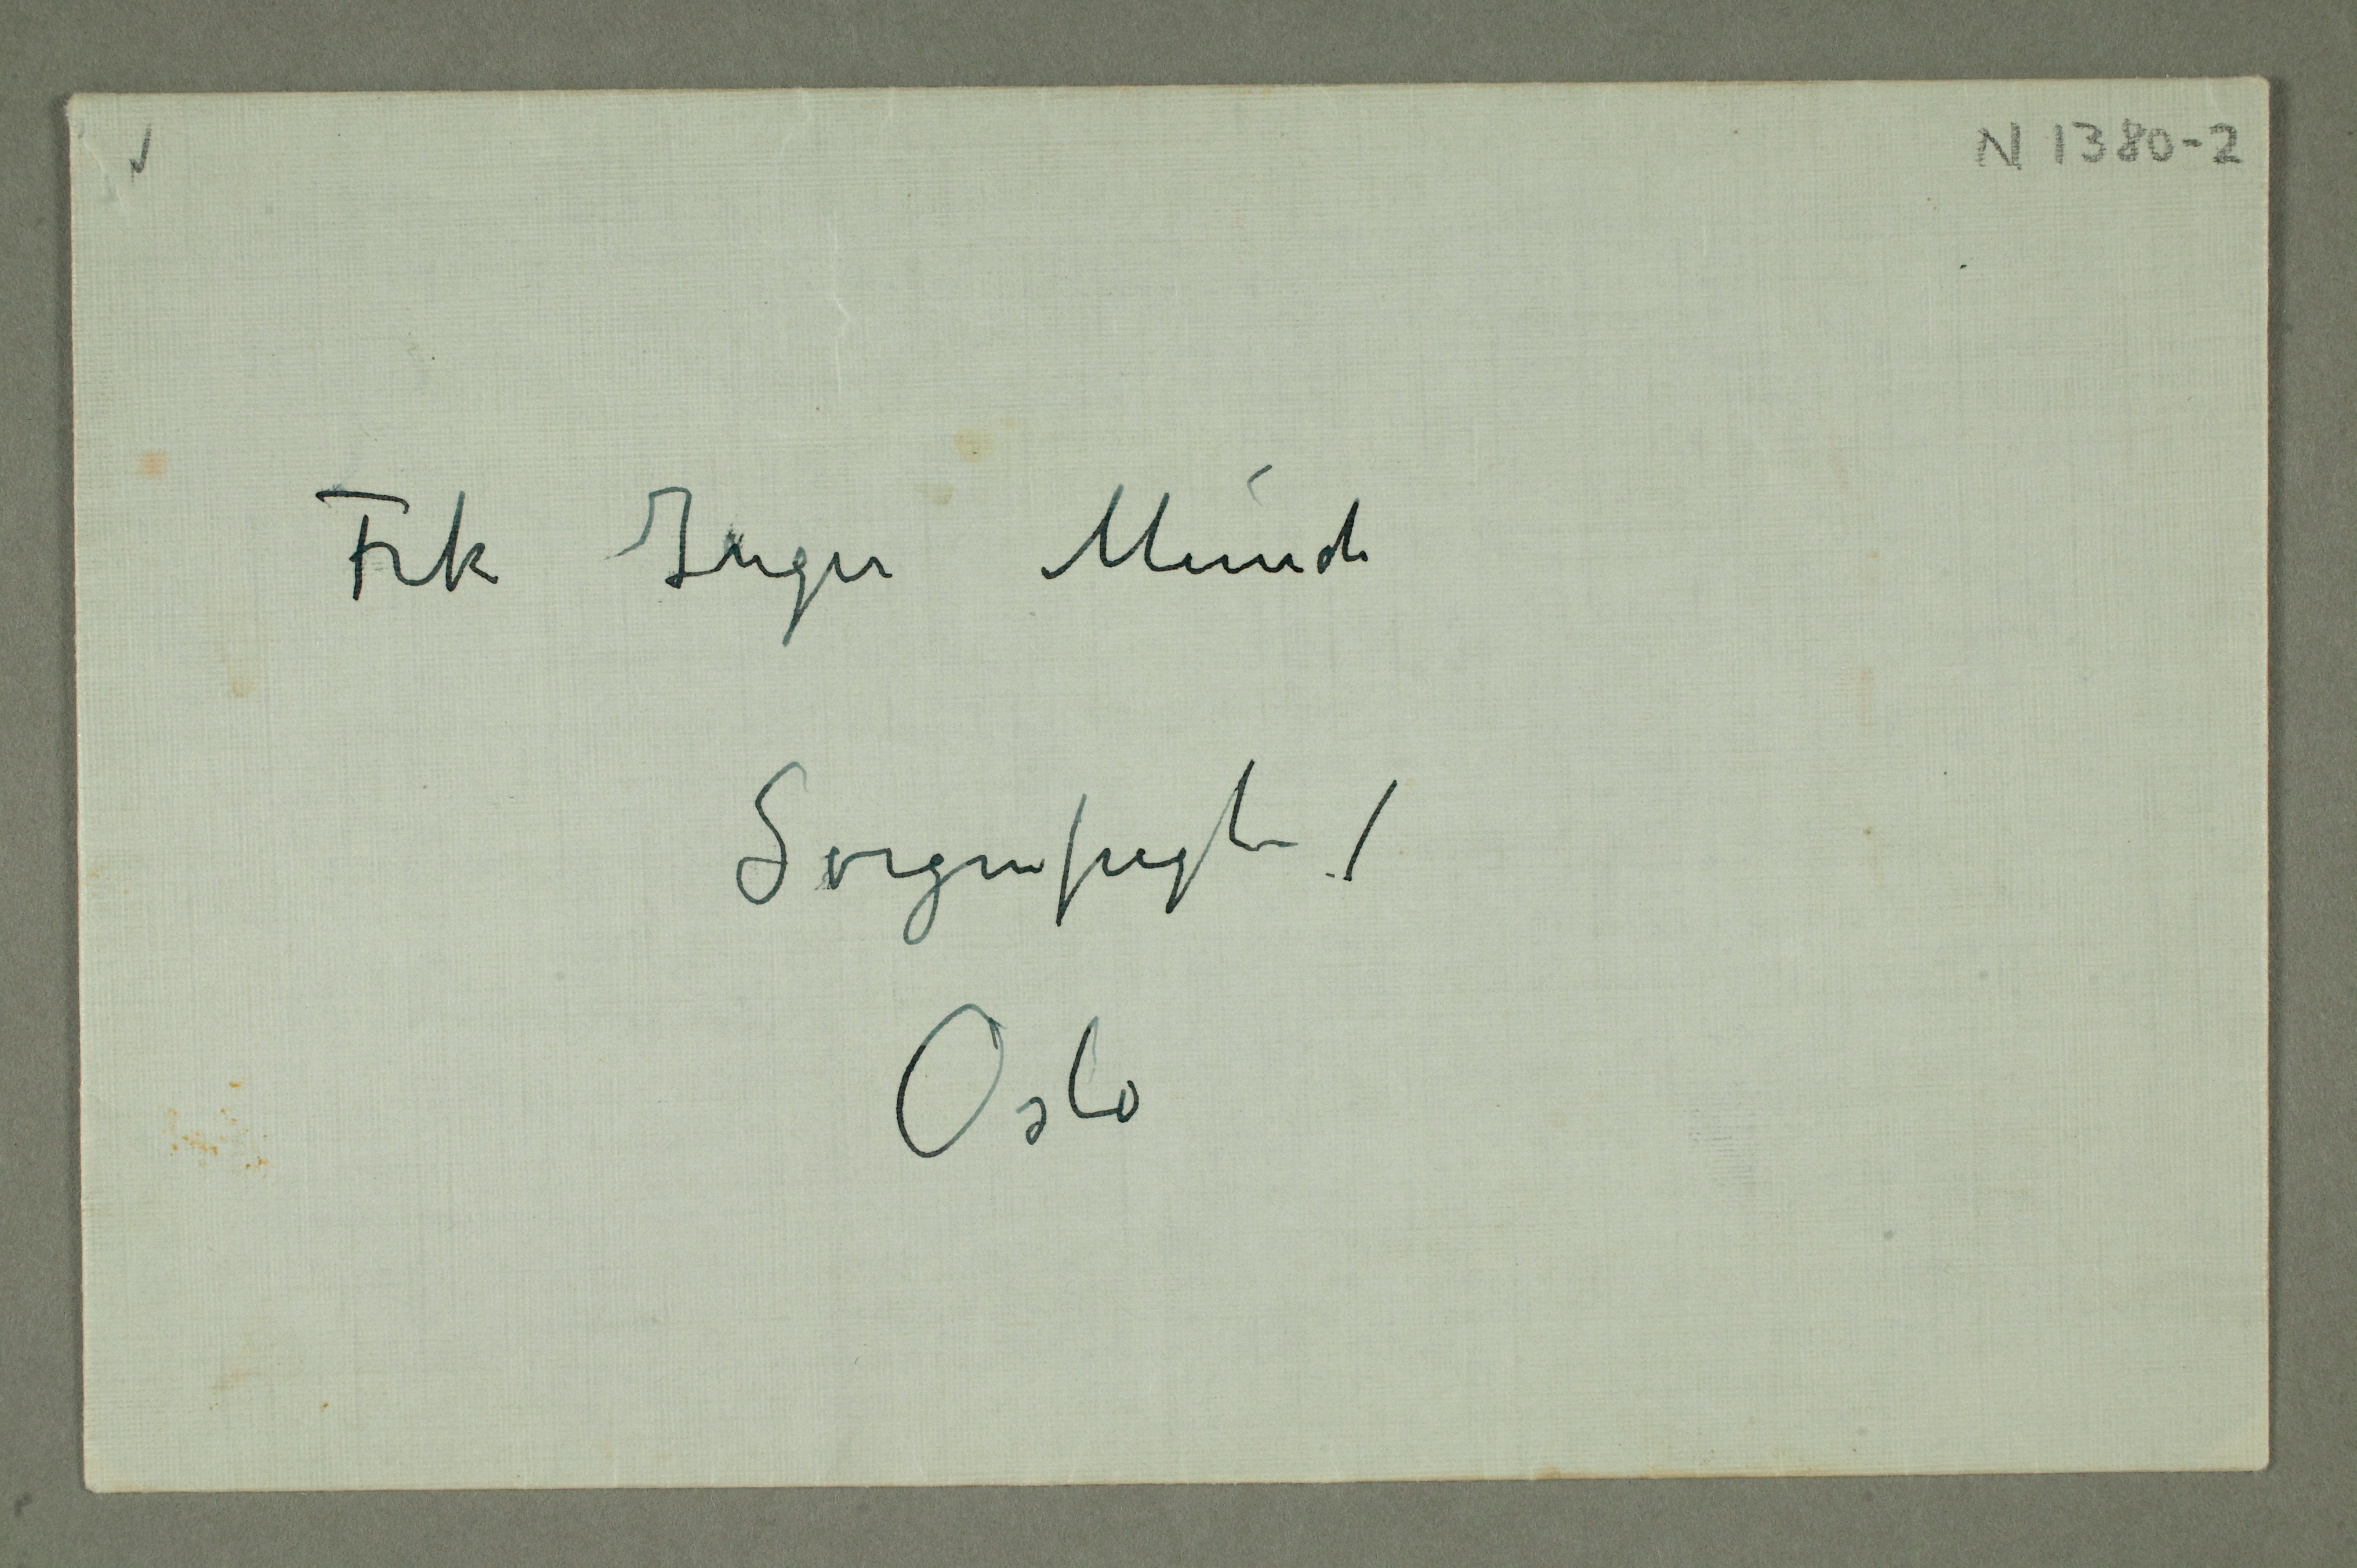 N 1380-2
Frk Inger Munch
Sorgenfrigt 1
Oslo